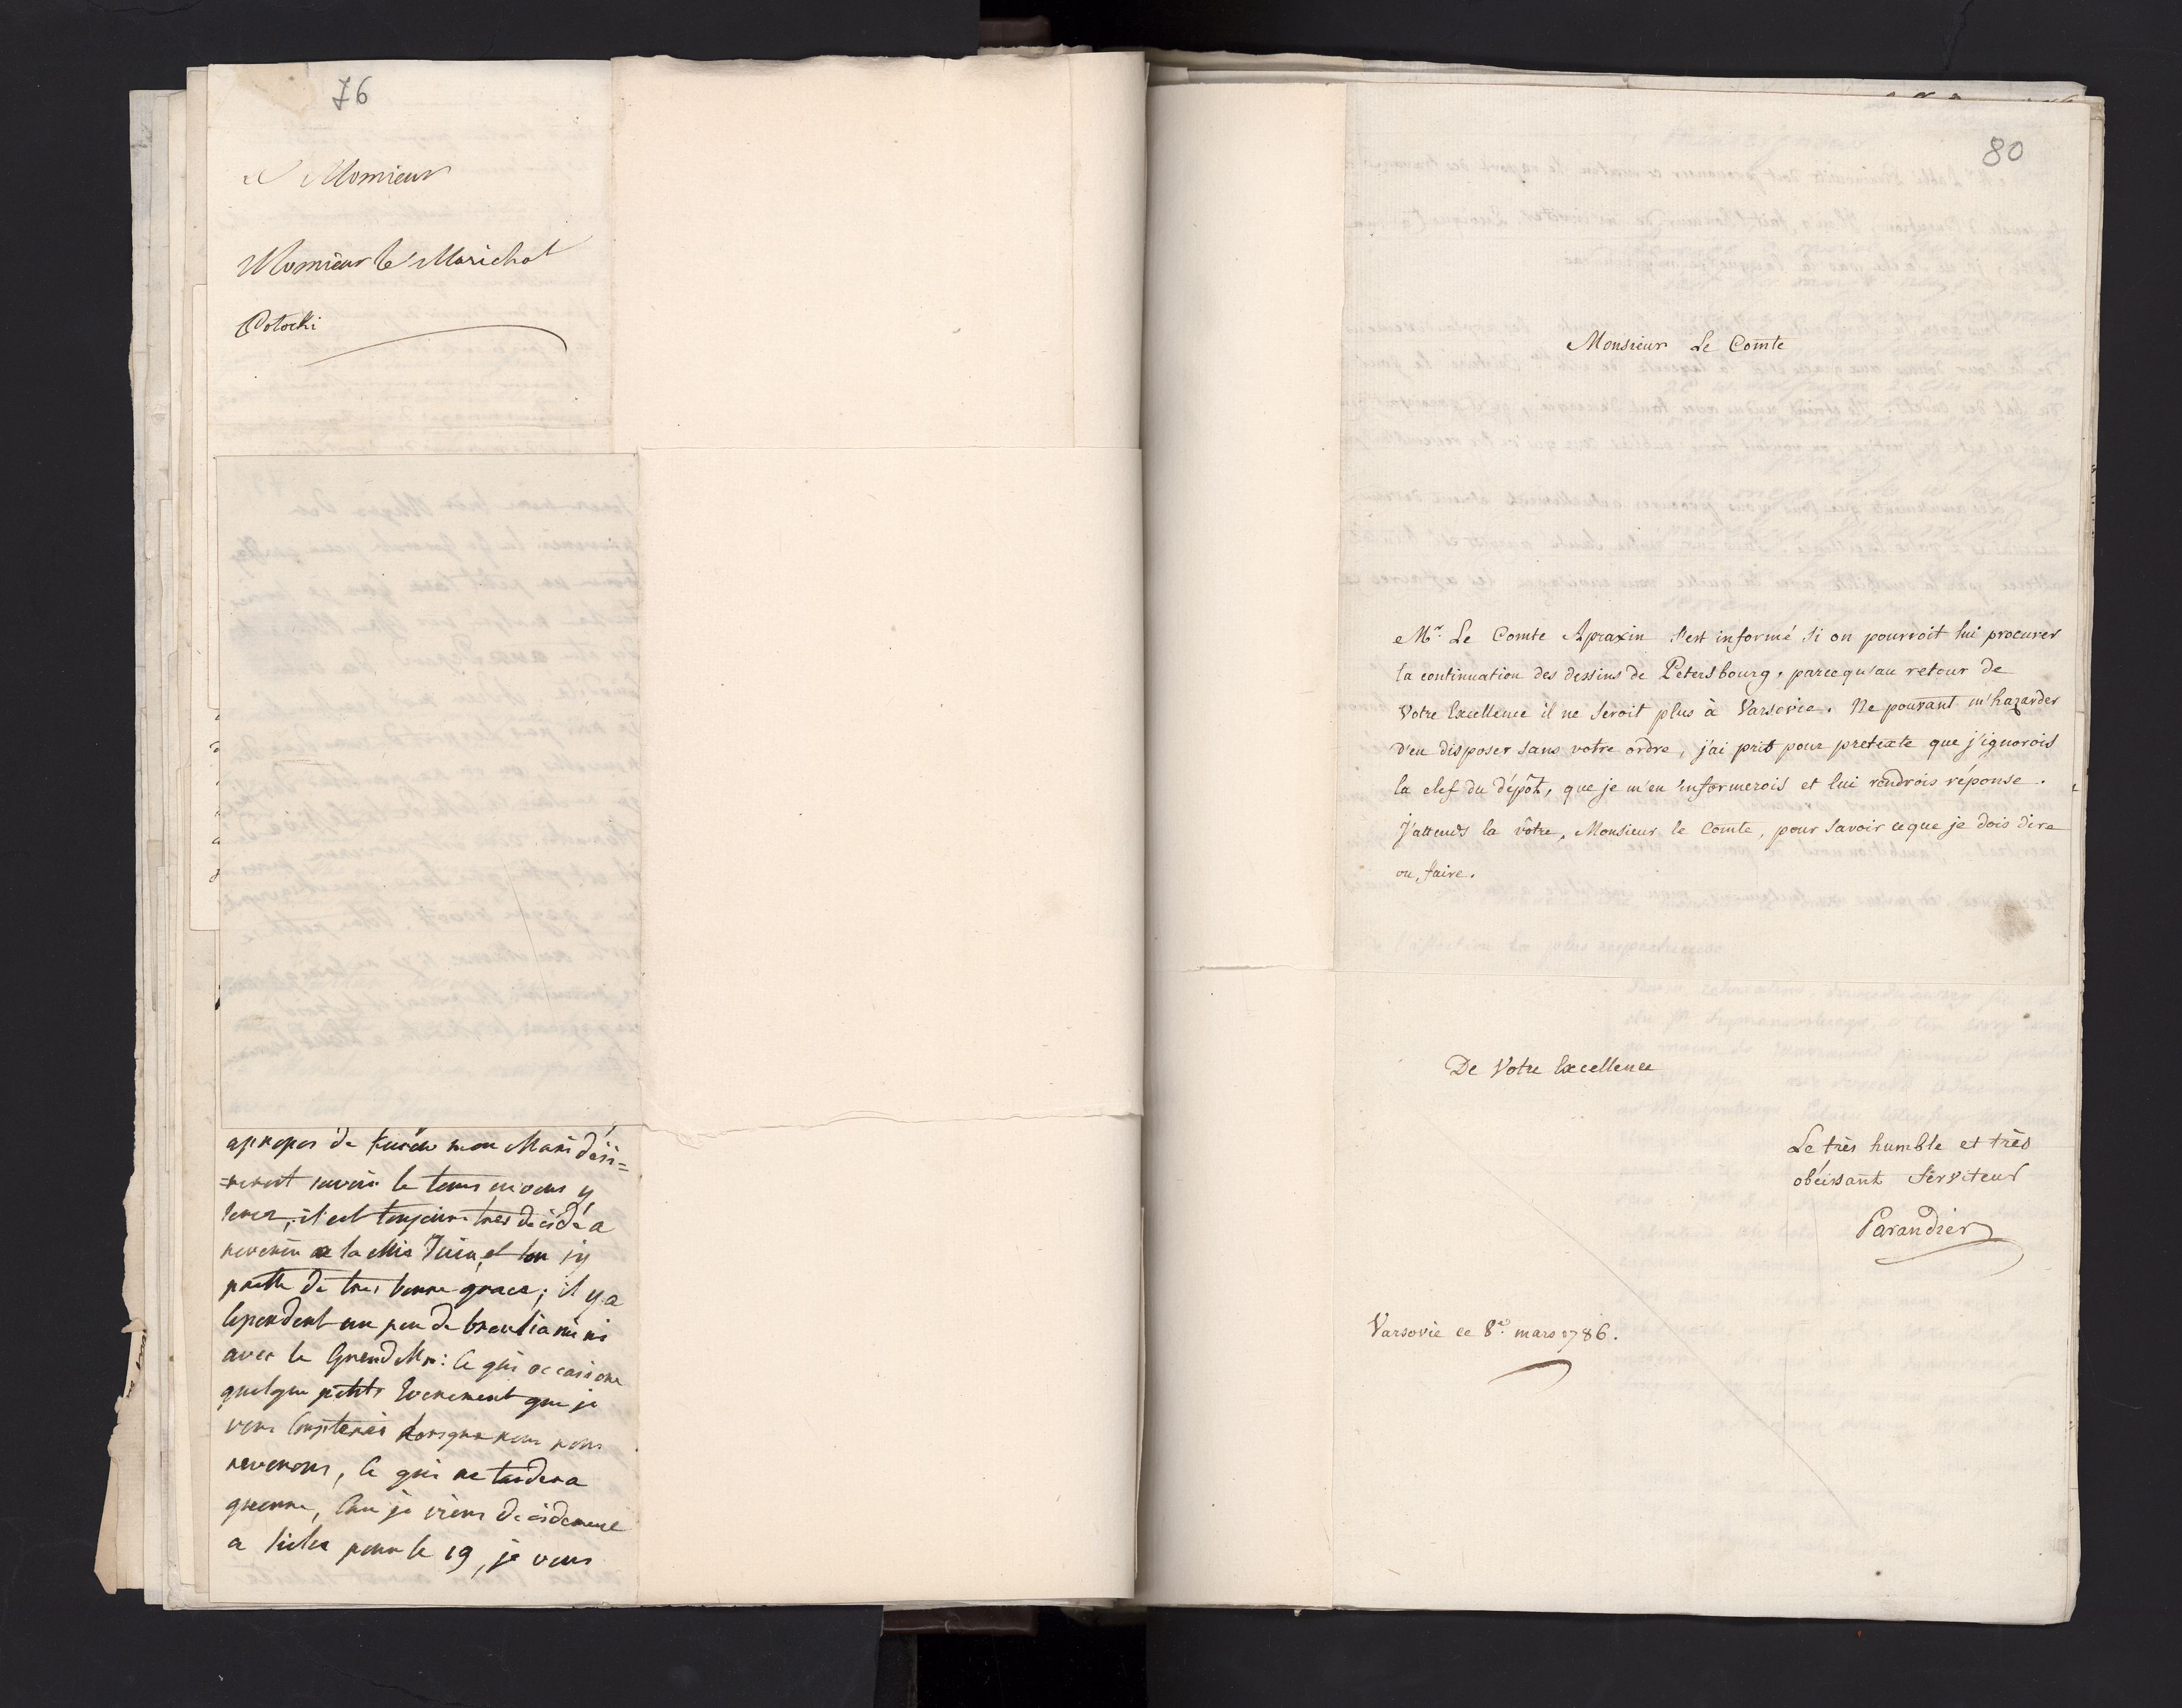 76
A Monsieur
Monsieur le Marichal
Potocki
apropos de mon Mari dési=
=reroit savoir le tems que vous y
serez, il est toujours tres decidé a
revenir a la Mis Juin, et l'on s'y
prette de tres bonne grace; il y a
cependent un peu de
avec le Grand Mr: ce qui occasione
quelque petits Evenement que je
vous compterai lorsque nous nous
reverons, ce qui ne tardera
guerre, car je viens decidement
a pour le 19, je vous
80
Monsieur Le Comte
Mr. Le Comte Apraxin s'est informé si on pourroit lui procurer
la continuation des dessins de Petersbourg, parcequ'au retour de
Votre Excellence il ne seroit plus à Varsovie. Ne pouvant m'hazarder
d'en disposer sans votre ordre, j'ai prit pour pretexte que j'ignorois
la clef du dépôt, que je m'en informerois et lui rendrois réponse.
J'attends la vôtre, Monsieur le Comte, pour savoir ce que je dois dire
ou faire.
De Votre Excellence
Le très humble et très
obéissant Serviteur
Parandier
Varsovie ce 8e. mars 1786.